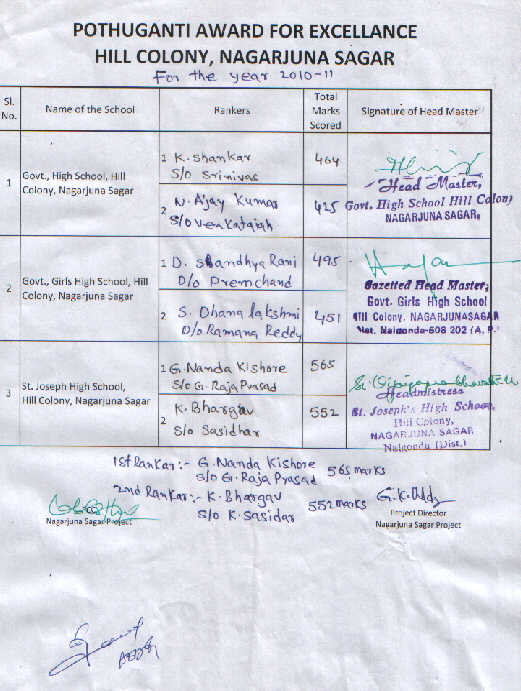 POTHUGANTI AWARD FOR EXCELLANCE
HILL COLONY, NAGARJUNA SAGAR
For the year 2010-11
Sl. No. Name of the School Rankers Total Marks Scored Signature of Head Master
1 Govt., High School, Hill Colony, Nagarjuna Sagar
1 K. Shankar 464
S/o Srinivas
2 N. Ajay Kumar 425
S/o Venkataiah
Head Master,
Govt. High School Hill Colony
NAGARJUNA SAGAR.
2 Govt., Girls High School, Hill Colony, Nagarjuna Sagar
1 D. Sandhya Rani 495
D/o Premchand
2 S. Dhana lakshmi 451
D/o Ramana Reddy
Gazetted Head Master,
Govt. Girls High School
Hill Colony, NAGARJUNASAGAR
Dist. Nalgonda-508 202 (A.P.)
3 St. Joseph High School, Hill Colony, Nagarjuna Sagar
1 G. Nanda Kishore 565
S/o G. Raja Prasad
2 K. Bhargav 552
S/o Sasidhar
Headmistress
St. Joseph's High School,
Hill Colony,
NAGARJUNA SAGAR
Nalgonda (Dist.)
1st Ranker:- G. Nanda Kishore 565 marks
S/o G. Raja Prasad
2nd Ranker:- K. Bhargav 552 marks
S/o K. Sasidar
Nagarjuna Sagar Project
Project Director
Nagarjuna Sagar Project